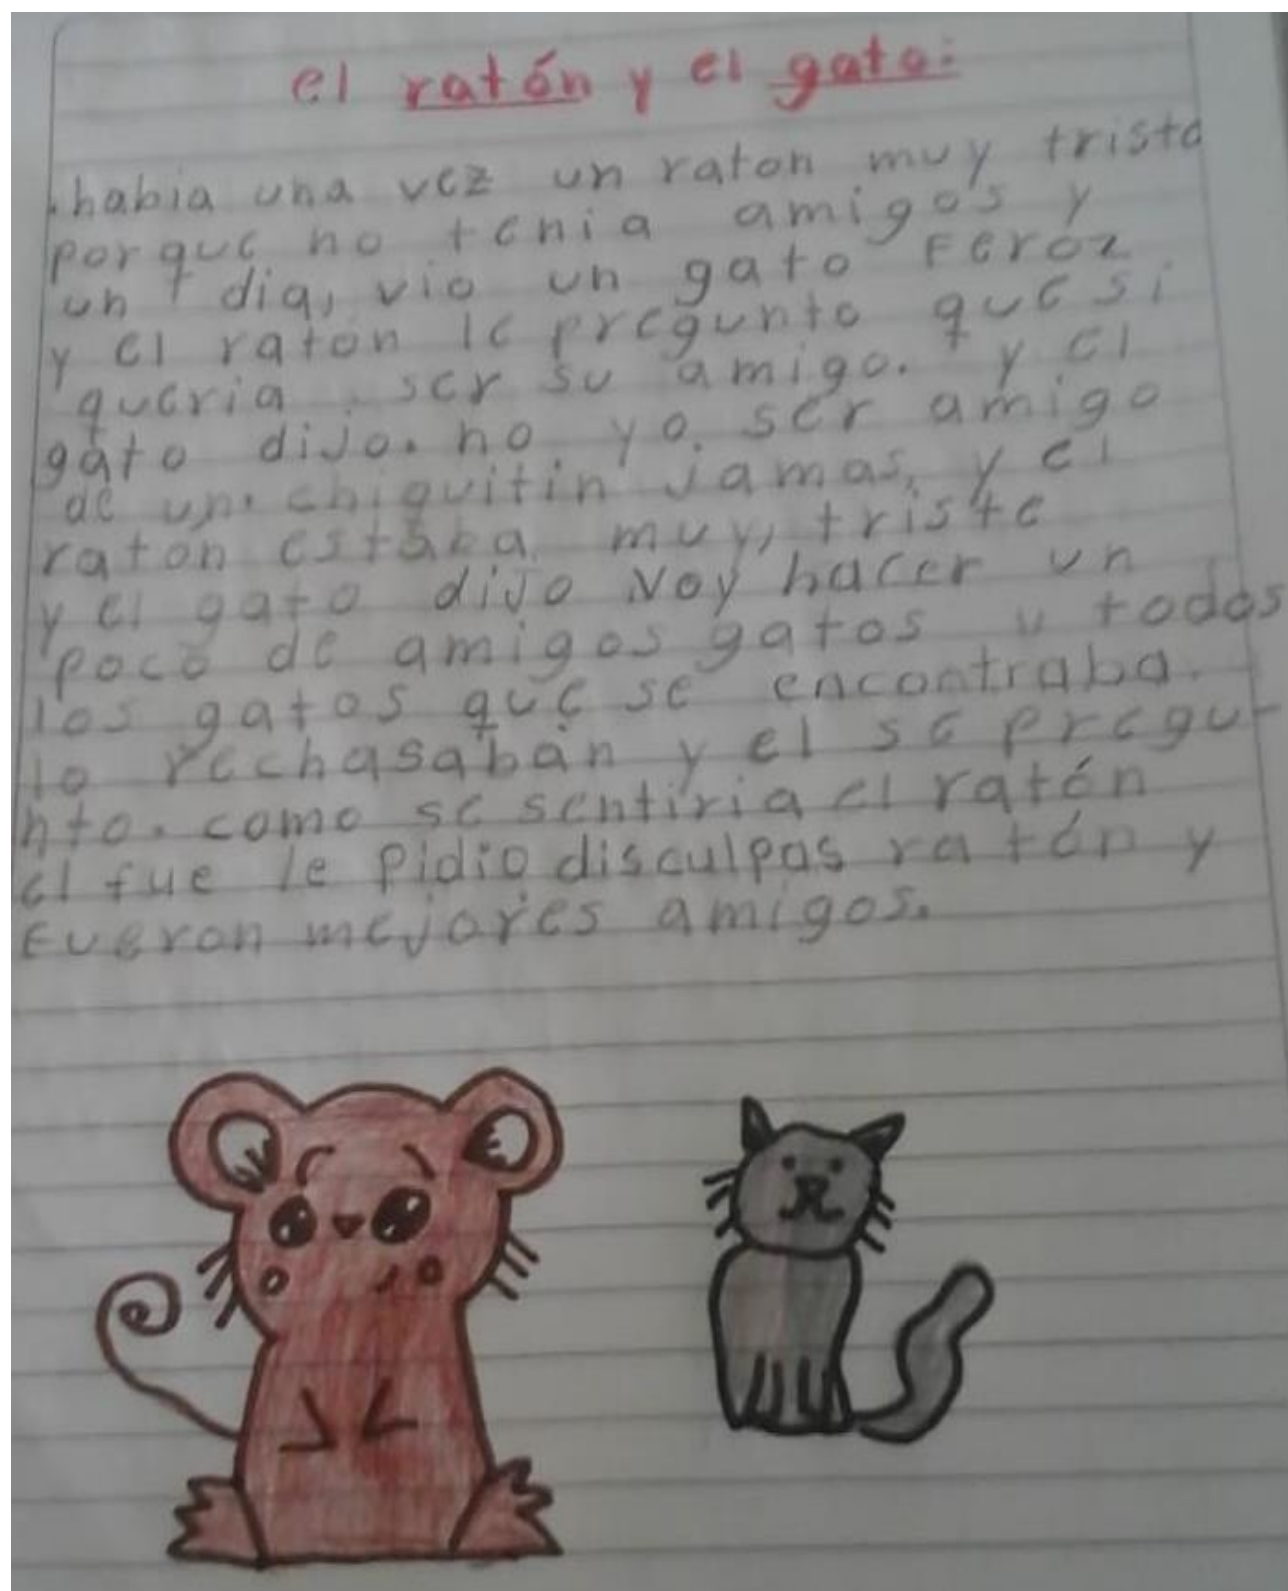 el ratón y el gato:
habia una vez un raton muy triste
porque no tenia amigos y
un dia, vio un gato Feroz
y el raton le pregunto que si
queria ser su amigo. y el
gato dijo. no yo. ser amigo
de un chiquitin jamas, y el
raton estaba muy, triste
y el gato dijo voy hacer un
poco de amigos gatos y todos
los gatos que se encontraba.
lo rechasaban y el se pregu-
nto. como se sentiria el ratón
el fue le Pidio disculpas ratón y
Fueron mejores amigos.